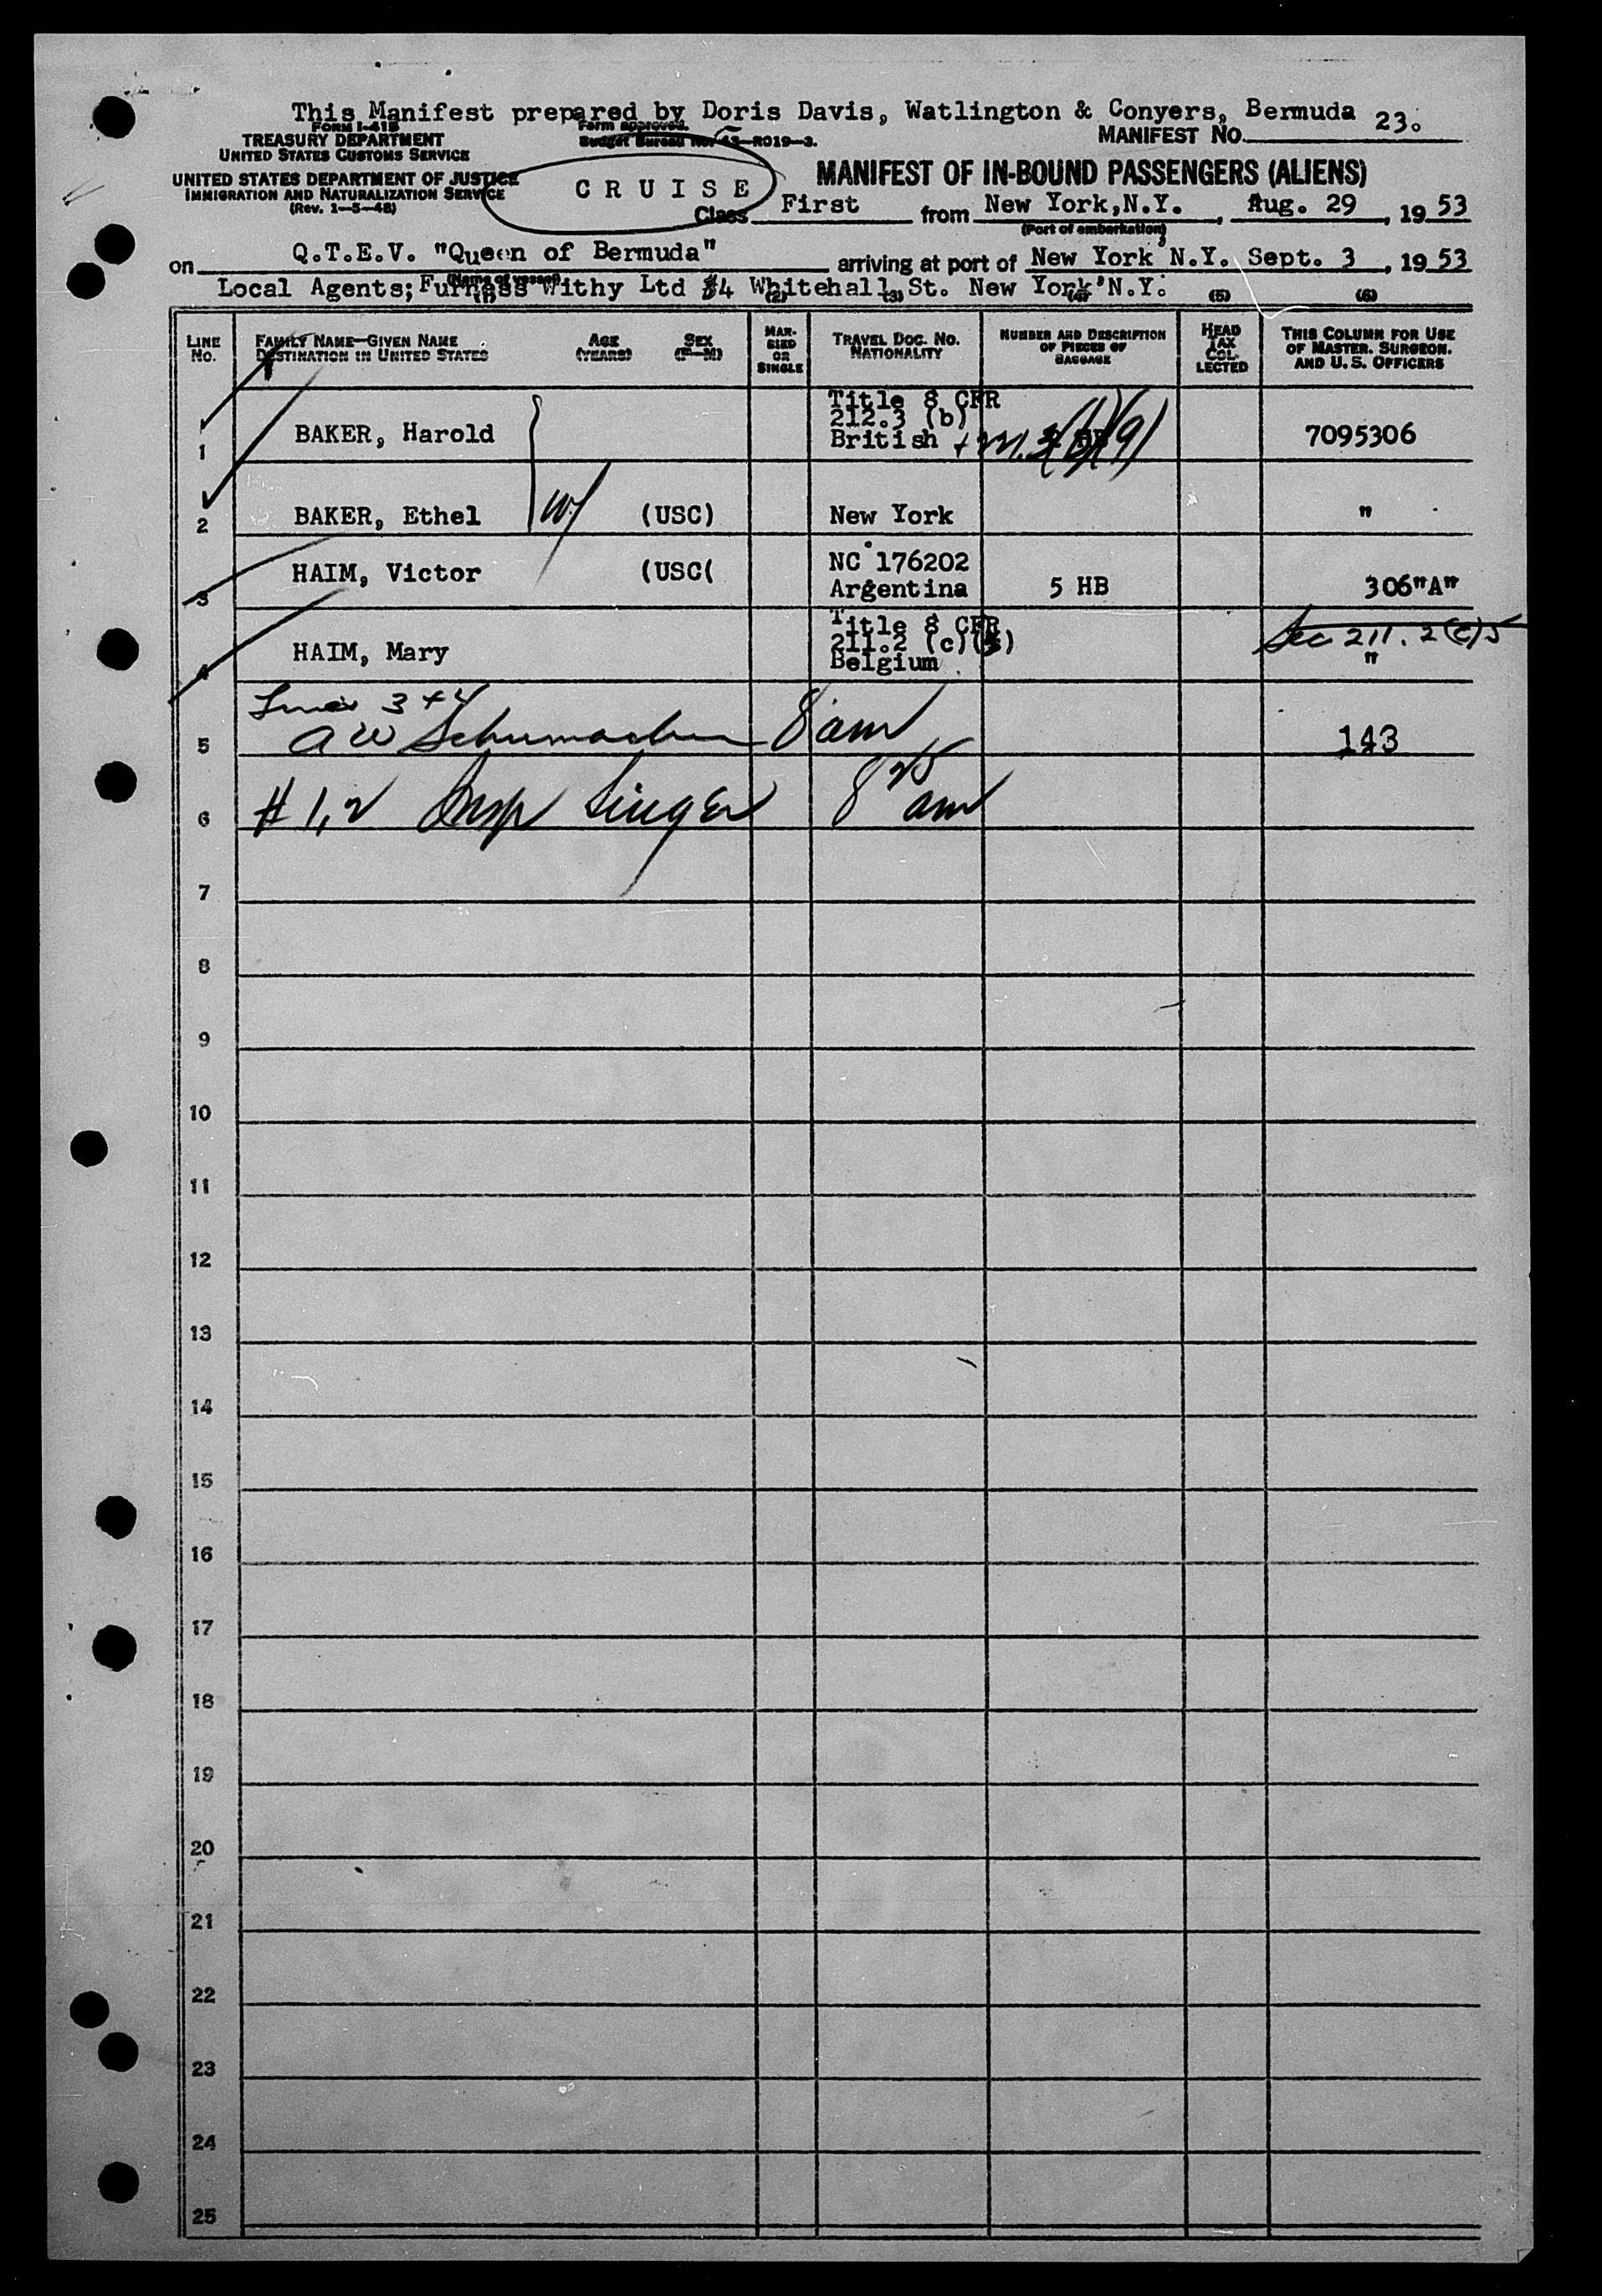 This Manifest prepared by Doris Davis, Watlington & Conyers, Bermuda
FORM I-418
TREASURY DEPARTMENT
UNITED STATES CUSTOMS SERVICE
UNITED STATES DEPARTMENT OF JUSTICE
IMMIGRATION AND NATURALIZATION SERVICE
(Rev. 1-5-48)
Form approved.
Budget Bureau No. 43-R019-3.
MANIFEST NO. 23.
C R U I S E
MANIFEST OF IN-BOUND PASSENGERS (ALIENS)
Class First from New York,N.Y. , Aug. 29 , 19 53
(Port of embarkation)
on Q.T.E.V. "Queen of Bermuda" arriving at port of New York N.Y. Sept. 3 , 19 53
(Name of vessel)
Local Agents; Furness Withy Ltd 34 Whitehall St. New York N.Y.
(1) (2) (3) (4) (5) (6)
LINE NO.
FAMILY NAME—GIVEN NAME
DESTINATION IN UNITED STATES
AGE (YEARS)
SEX (F—M)
MARRIED OR SINGLE
TRAVEL DOC. NO. NATIONALITY
NUMBER AND DESCRIPTION OF PIECES OF BAGGAGE
HEAD TAX COLLECTED
THIS COLUMN FOR USE OF MASTER, SURGEON, AND U. S. OFFICERS
Title 8 CFR
212.3 (b)
1 BAKER, Harold British 7095306
2 BAKER, Ethel (USC) New York "
NC 176202
3 HAIM, Victor (USC( Argentina 5 HB 306"A"
Title 8 CFR
211.2 (c)
Sec 211.2(c)5
4 HAIM, Mary Belgium "
Lines 3 + 4
5 A W Schumacher 8 am 143
6 # 1, 2 Insp Singer 8 25 am
7
8
9
10
11
12
13
14
15
16
17
18
19
20
21
22
23
24
25